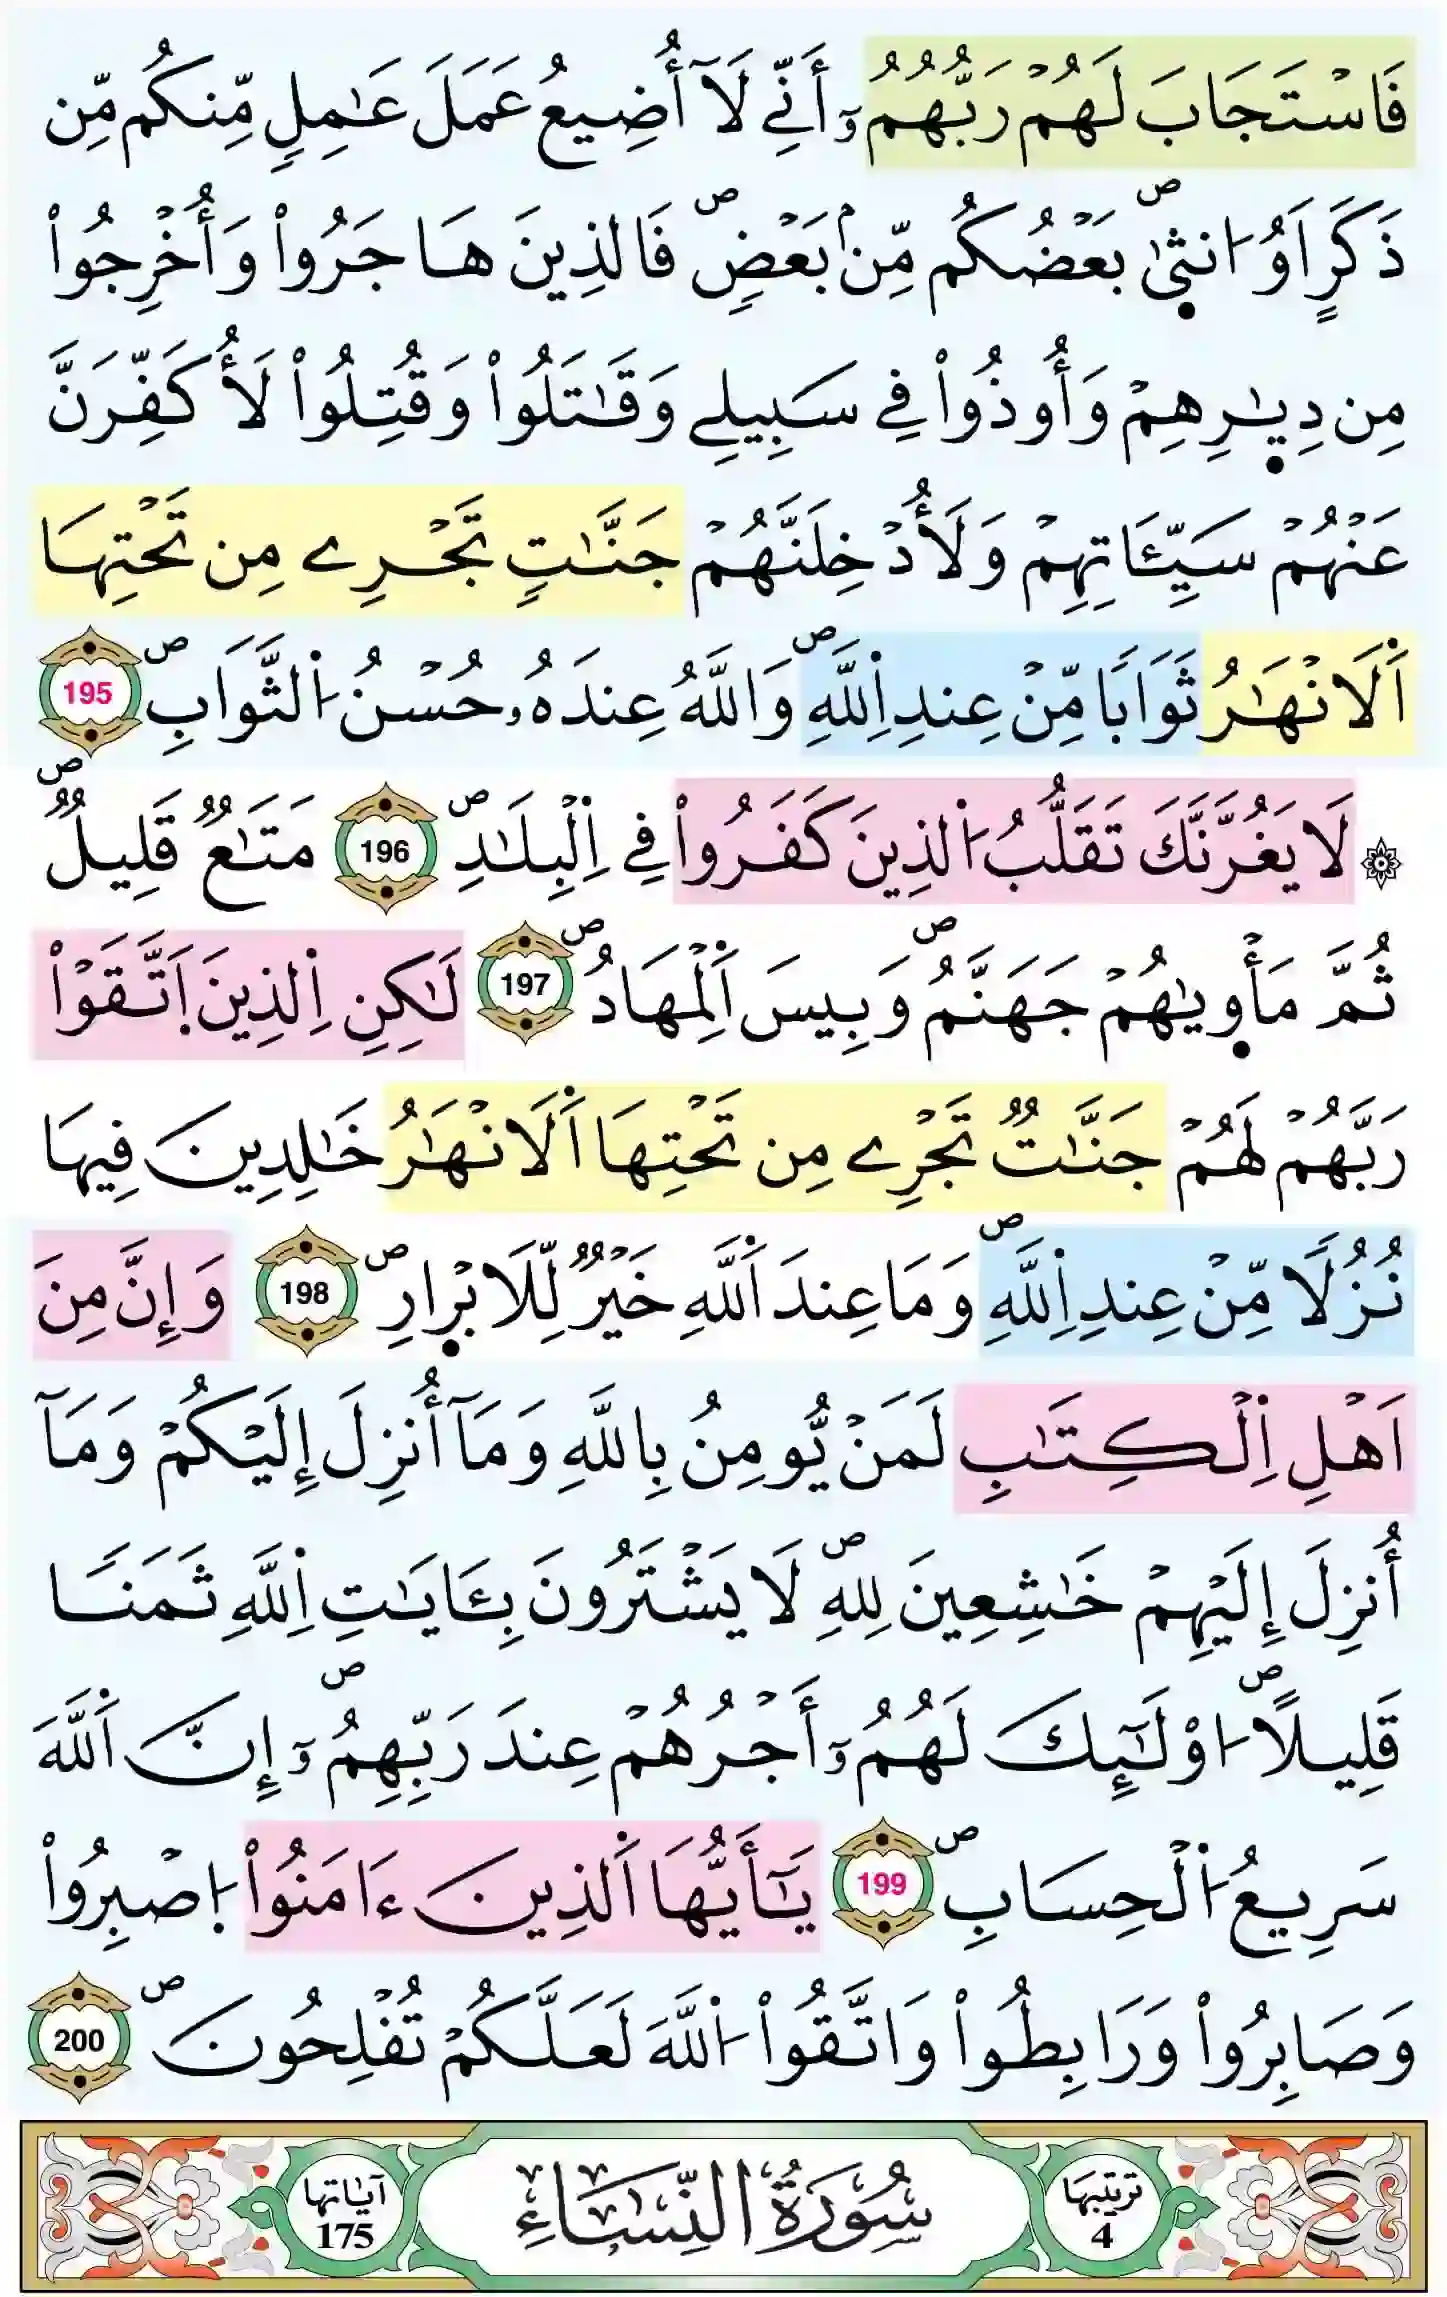 فَاسْتَجَابَ لَهُمْ رَبُّهُمُۥٓ أَنِّے لَآ أُضِيعُ عَمَلَ عَٰمِلٖ مِّنكُم مِّن
ذَكَرٍ اَوُ ا۟نث۪يٰۖ بَعْضُكُم مِّنۢ بَعْضٖۖ فَالذِينَ هَاجَرُواْ وَأُخْرِجُواْ
مِن دِيٰ۪رِهِمْ وَأُوذُواْ فِے سَبِيلِے وَقَٰتَلُواْ وَقُتِلُواْ لَأُكَفِّرَنَّ
عَنْهُمْ سَيِّـَٔاتِهِمْ وَلَأُدْخِلَنَّهُمْ جَنَّٰتٖ تَجْرِے مِن تَحْتِهَا
اَ۬لَانْهَٰرُ ثَوَاباٗ مِّنْ عِندِ اِ۬للَّهِۖ وَاللَّهُ عِندَهُۥ حُسْنُ ا۬لثَّوَابِۖ 195
۞ لَا يَغُرَّنَّكَ تَقَلُّبُ ا۬لذِينَ كَفَرُواْ فِے اِ۬لْبِلَٰدِۖ 196 مَتَٰعٞ قَلِيلٞۖ
ثُمَّ مَأْو۪يٰهُمْ جَهَنَّمُۖ وَبِيسَ اَ۬لْمِهَادُۖ 197 لَٰكِنِ اِ۬لذِينَ اَ۪تَّقَوْاْ
رَبَّهُمْ لَهُمْ جَنَّٰتٞ تَجْرِے مِن تَحْتِهَا اَ۬لَانْهَٰرُ خَٰلِدِينَ فِيهَا
نُزُلاٗ مِّنْ عِندِ اِ۬للَّهِۖ وَمَا عِندَ اَ۬للَّهِ خَيْرٞ لِّلَابْ۪رارِۖ 198 وَإِنَّ مِنَ
اَهْلِ اِ۬لْكِتَٰبِ لَمَنْ يُّومِنُ بِاللَّهِ وَمَآ أُنزِلَ إِلَيْكُمْ وَمَآ
أُنزِلَ إِلَيْهِمْ خَٰشِعِينَ لِلهِۖ لَا يَشْتَرُونَ بِـَٔايَٰتِ اِ۬للَّهِ ثَمَناٗ
قَلِيلاًۖ ا۟وْلَٰٓئِكَ لَهُمُۥٓ أَجْرُهُمْ عِندَ رَبِّهِمُۥٓۖ إِنَّ اَ۬للَّهَ
سَرِيعُ ا۬لْحِسَابِۖ 199 يَٰٓأَيُّهَا اَ۬لذِينَ ءَامَنُواْ اُ۪صْبِرُواْ
وَصَابِرُواْ وَرَابِطُواْ وَاتَّقُواْ ا۬للَّهَ لَعَلَّكُمْ تُفْلِحُونَۖ 200
ترتيبها 4 سُورَةُ النِّسَاءِ آياتها 175